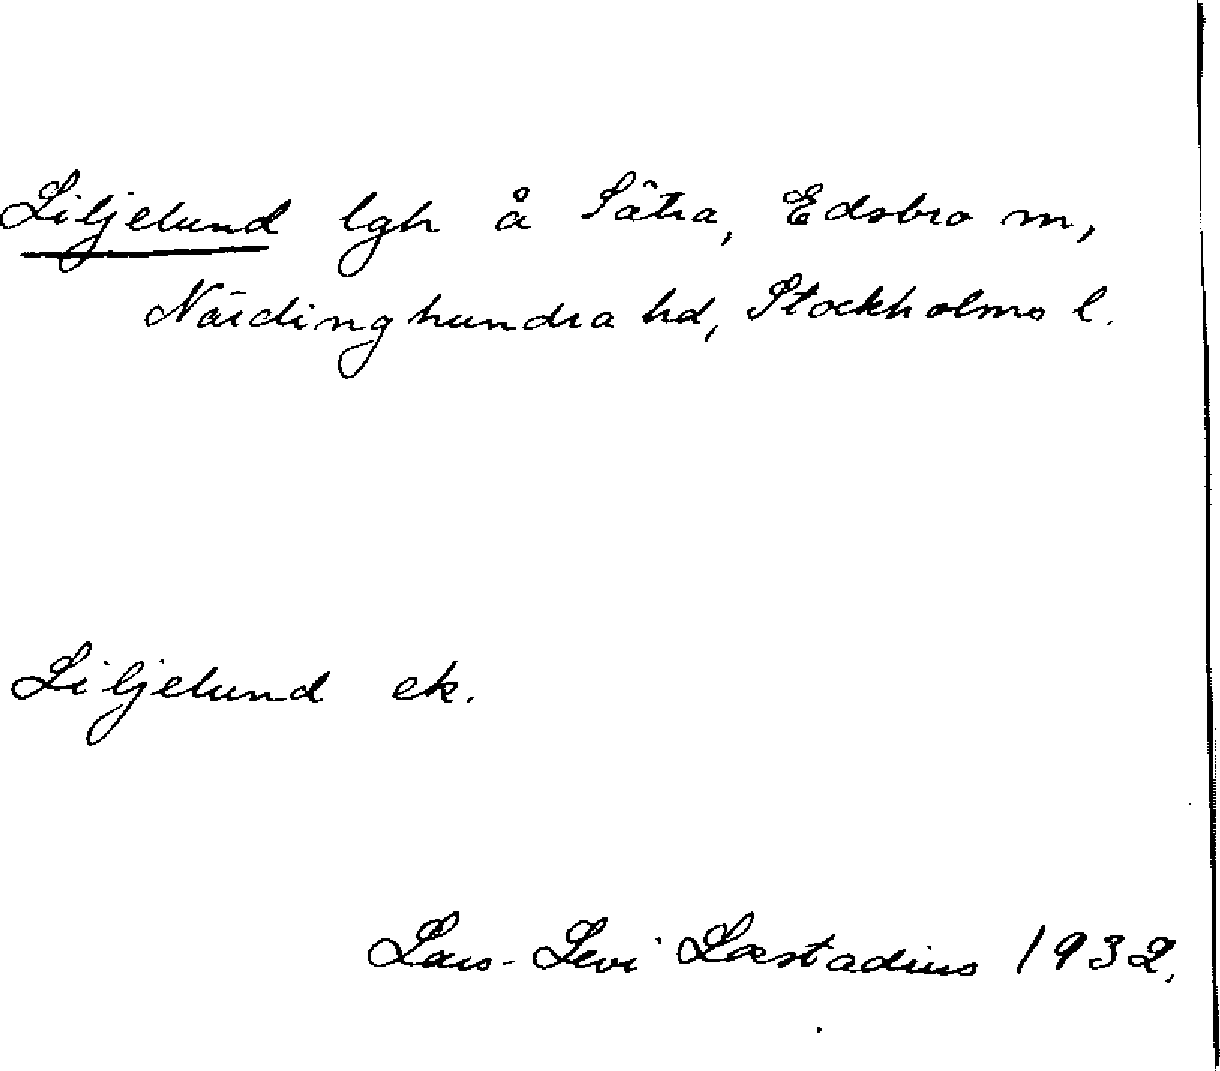 Liljelund lgh å Sätra, Edsbro sn,
Närdinghundra hd, Stockholms l.
Liljelund ek.
Lars-Levi Læstadius 1932.